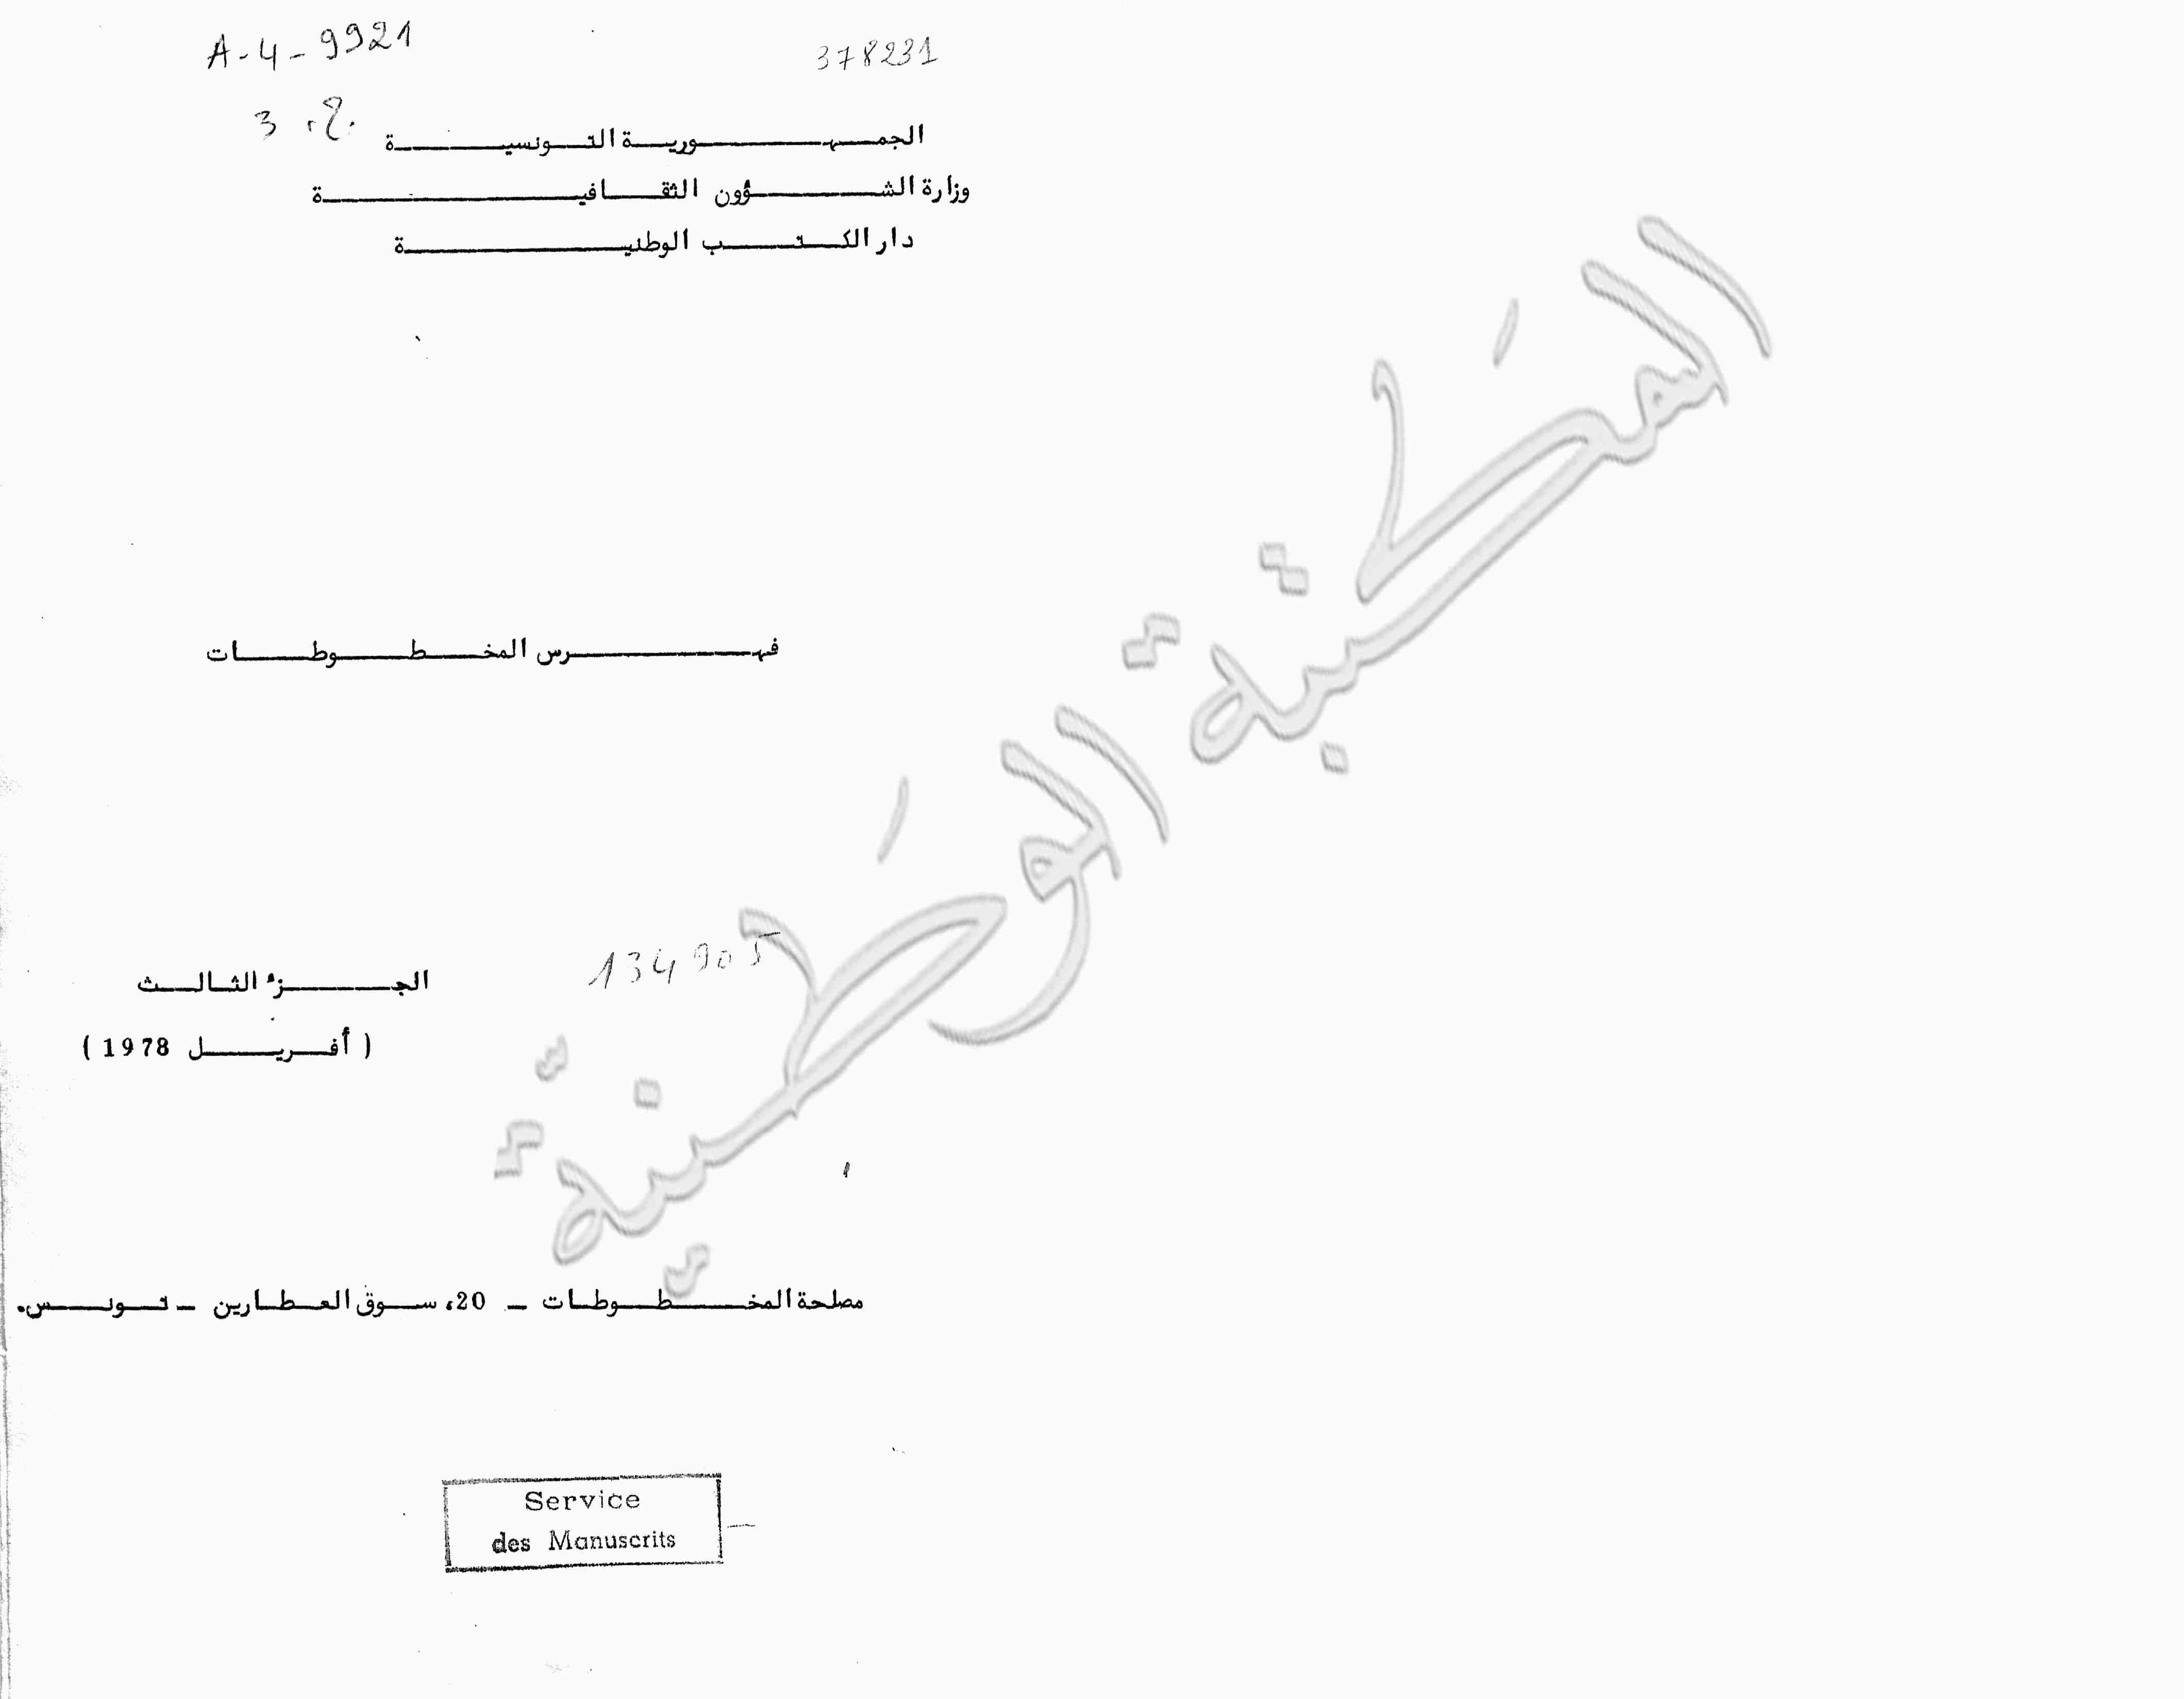 A-4-9921
378231
ج. 3
الجمهورية التونسية
وزارة الشؤون الثقافية
دار الكتب الوطنية
فهرس المخطوطات
134905
الجزء الثالث
( أفريل 1978 )
مصلحة المخطوطات - 20، سوق العطارين - تونس.
Service
des Manuscrits
المكتبة الوطنية